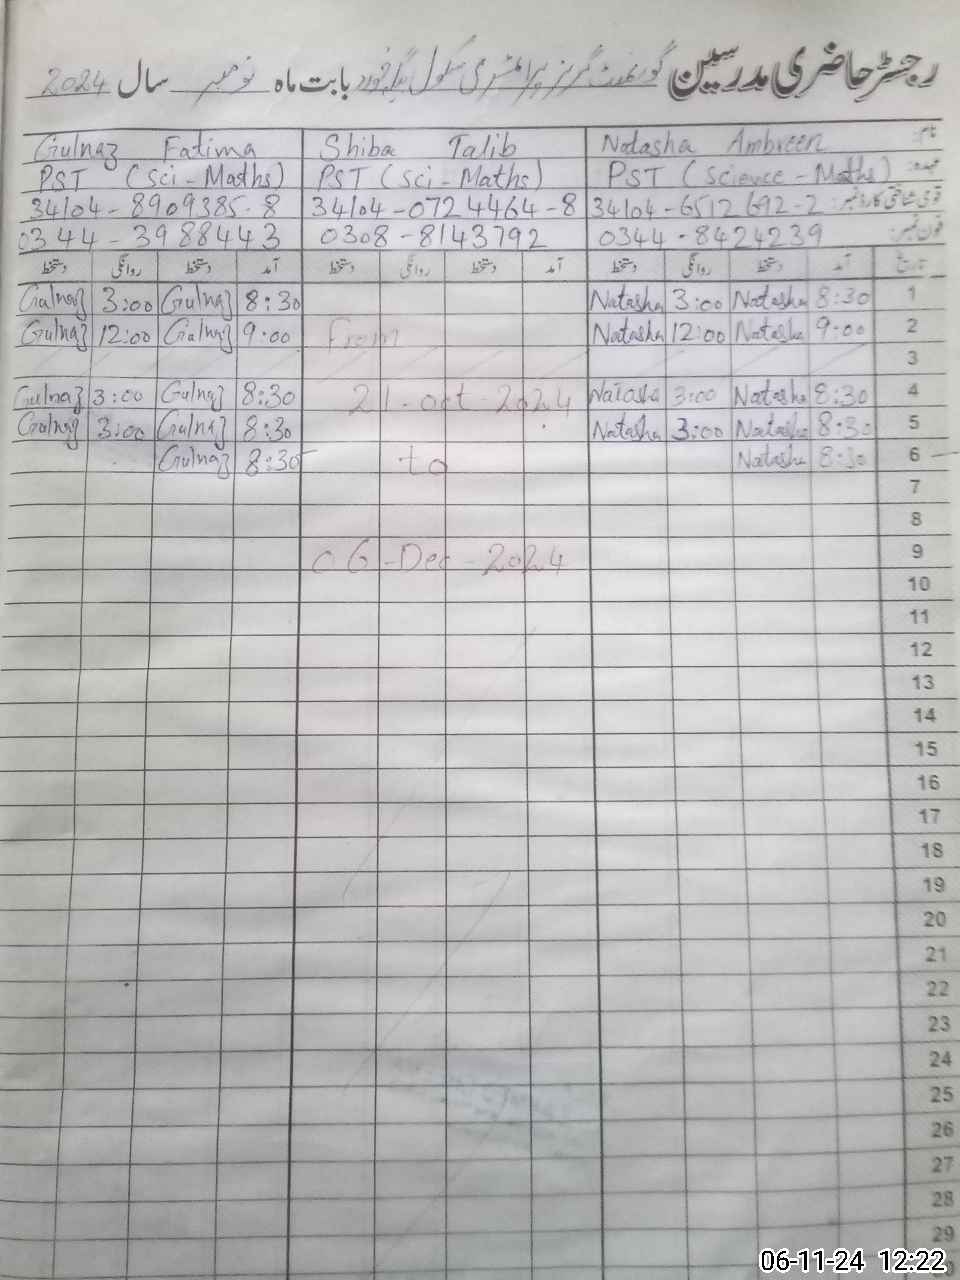 رجسٹر حاضری مدرسین گورنمنٹ گرلز پرائمری سکول بابت ماہ نومبر سال 2024
Gulnaz Fatima Shiba Talib Natasha Ambreen نام:
PST (Sci - Maths) PST (Sci - Maths) PST (Science - Maths) عہدہ:
34104-8909385-8 34104-0724464-8 34104-6512692-2 قومی شناختی کارڈ نمبر:
0344-3988443 0308-8143792 0344-8424239 فون نمبر:
دستخط روانگی دستخط آمد دستخط روانگی دستخط آمد دستخط روانگی دستخط آمد تاریخ
Gulnaz 3:00 Gulnaz 8:30 Natasha 3:00 Natasha 8:30 1
Gulnaz 12:00 Gulnaz 9:00 From Natasha 12:00 Natasha 9:00 2
3
Gulnaz 3:00 Gulnaz 8:30 21-oct-2024 Natasha 3:00 Natasha 8:30 4
Gulnaz 3:00 Gulnaz 8:30 Natasha 3:00 Natasha 8:30 5
Gulnaz 8:30 to Natasha 8:30 6
7
8
06-Dec-2024 9
10
11
12
13
14
15
16
17
18
19
20
21
22
23
24
25
26
27
28
29
06-11-24 12:22